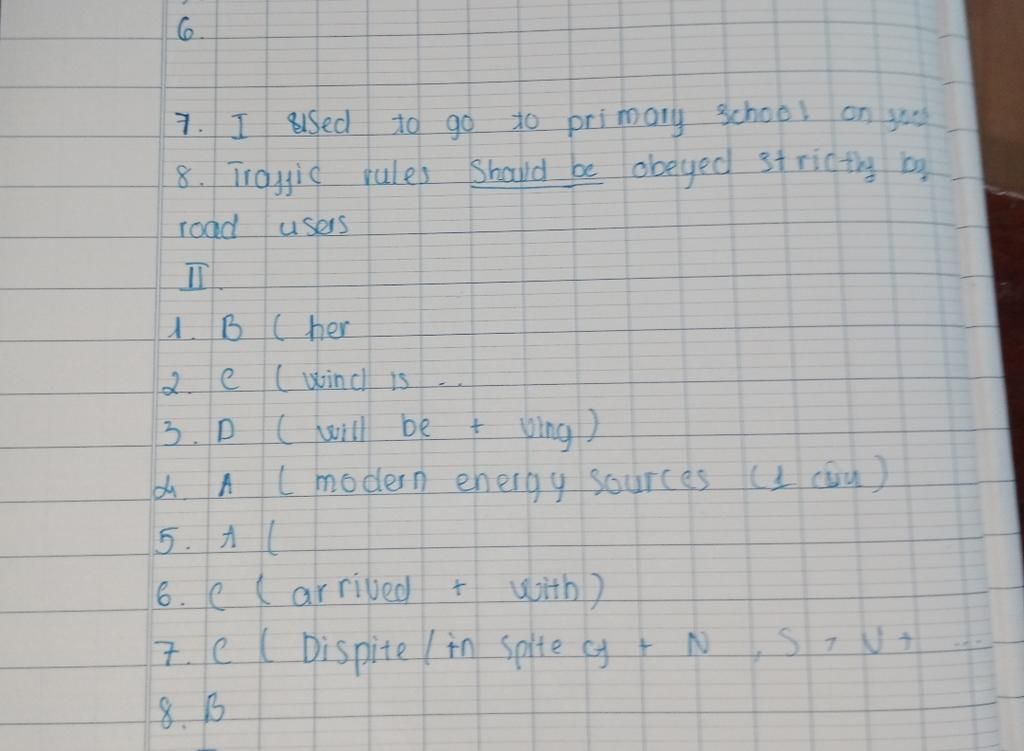 6.
7. I used to go to primary school on
8. Traffic rules should be obeyed strictly by
road users
II.
1. B ( her
2. C ( wind is ...
3. D ( will be + Ving )
4. A ( modern energy sources ( 1
5. A (
6. C ( arrived + with )
7. C ( Dispite / in spite of + N , S + V + ...
8. B